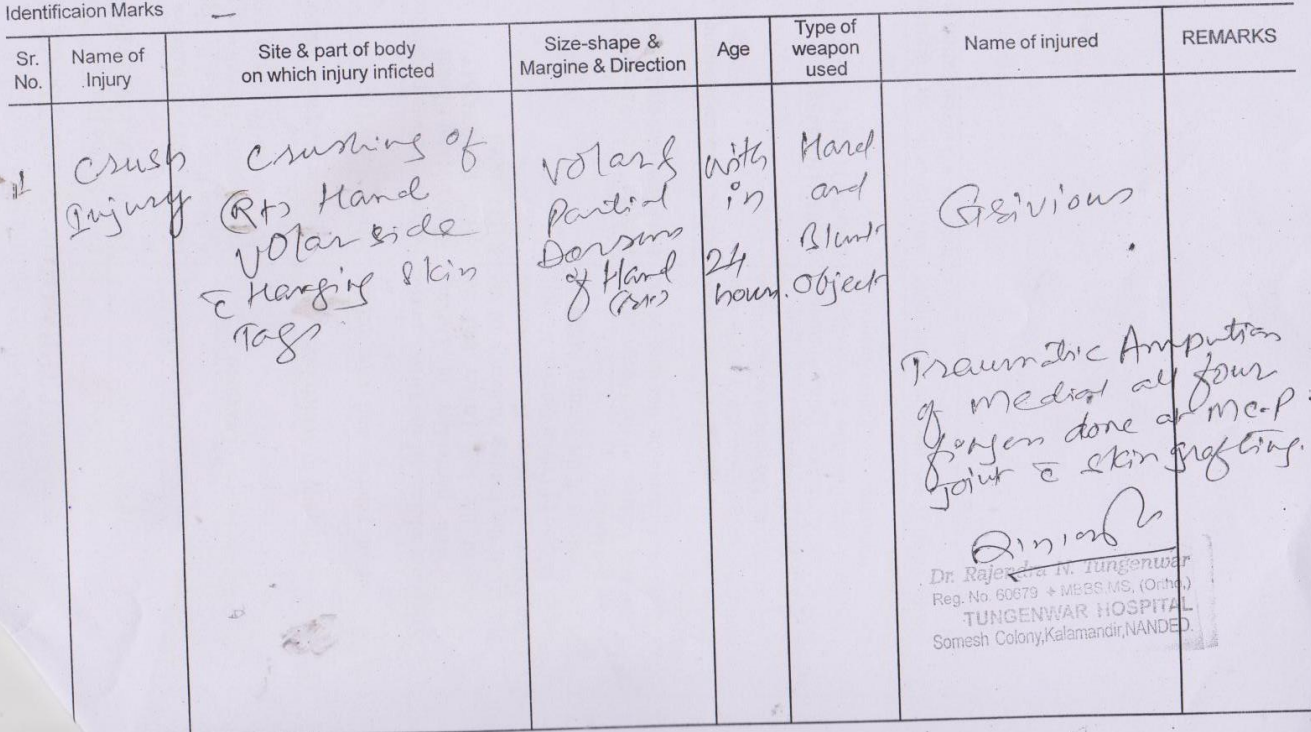 Identificaion Marks —
Sr. No.
Name of Injury
Site & part of body on which injury inficted
Size-shape & Margine & Direction
Age
Type of weapon used
Name of injured
REMARKS
1
Crush
Injury
Crushing of
(Rt) Hand
Volar side
c̄ Hanging Skin
Tags
Volar &
Partial
Dorsum
of Hand
with
in
24
hours.
Hard
and
Blunt
Object
Grivious
Traumatic Ampution
of medial all four
finger done at Mc-P.
joint c̄ skin grafting.
Dr. Rajendra N. Tungenwar
Reg. No. 60679 + MBBS,MS, (Ortho.)
TUNGENWAR HOSPITAL
Somesh Colony,Kalamandir,NANDED.